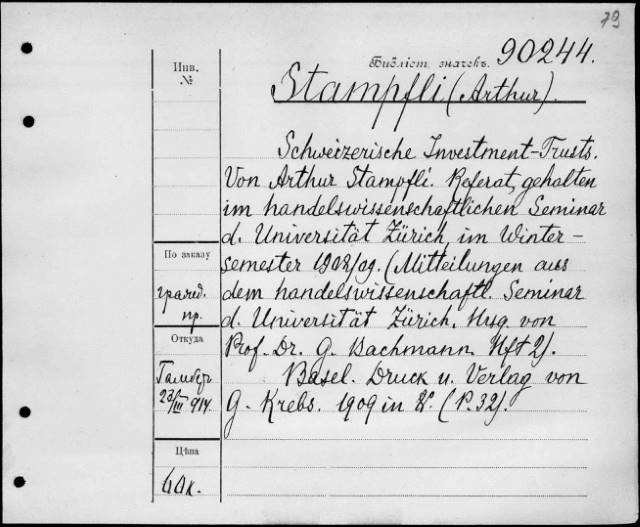 79
Библіот. значекъ. 90244.
Инв.
№
Stampfli (Arthur).
Schweizerische Investment-Trusts.
Von Arthur Stampfli. Referat, gehalten
im handelswissenschaftlichen Seminar
d. Universität Zürich, im Winter-
semester 1908/09. (Mitteilungen aus
dem handelswissenschaftl. Seminar
d. Universität Zürich, Hrsg. von
Prof. Dr. G. Bachmann. Hft 2).
Basel. Druck u. Verlag von
G. Krebs. 1909 in 8°. (P. 32).
По заказу
пр.
Откуда
23/III 914.
Цѣна
60 к.